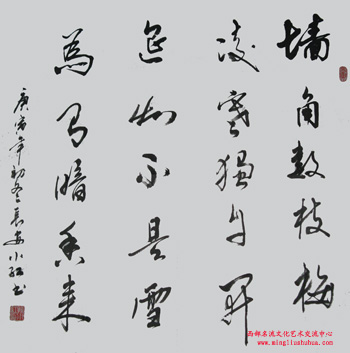 墙角数枝梅
凌寒独自开
遥知不是雪
为有暗香来
庚寅年初冬长安小红书
西部名流文化艺术交流中心
www.mingliushuhua.com